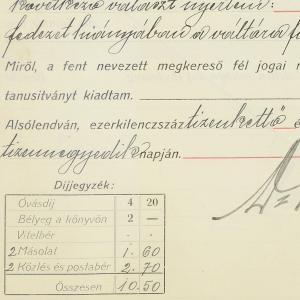 következő választ nyertem:
fedezet hiányában a váltóra f
Miről, a fent nevezett megkereső fél jogai
tanusitványt kiadtam.
Alsólendván, ezerkilencszáz tizenkettő é
tizennegyedik napján.
Díjjegyzék:
Óvásdij 4 20
Bélyeg a könyvön 2 —
Vitelbér . .
2 Másolat 1. 60
2 Közlés és postabér 2. 70
Összesen 10.50